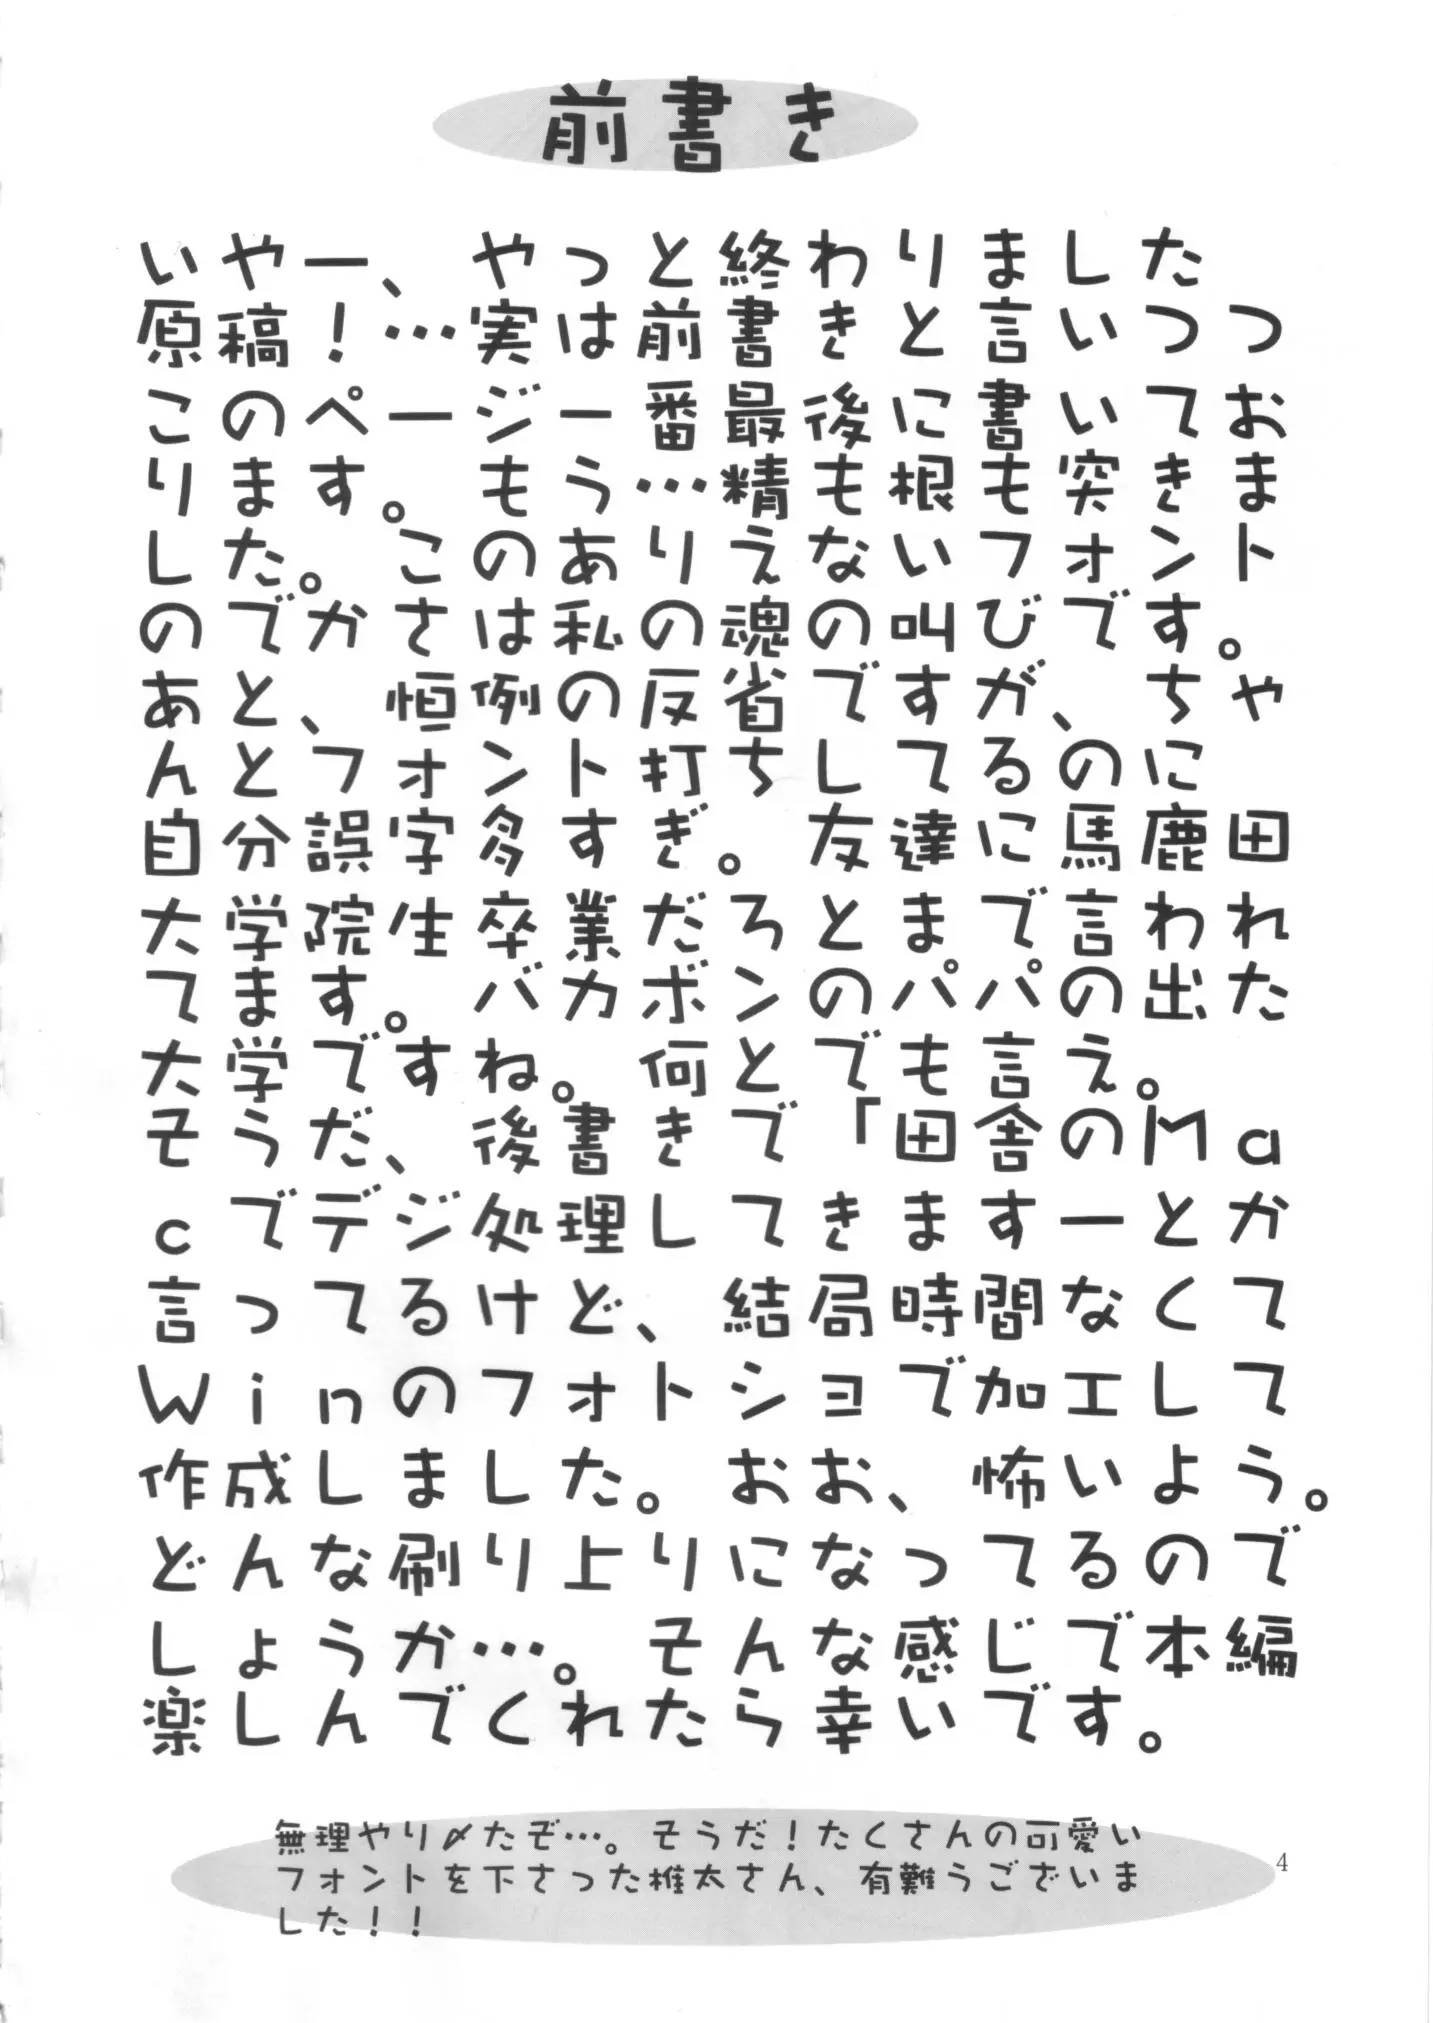 前書き
いやー、やっと終わりました
原稿！…実は前書きと言いつつ
このページ一番最後に書いてお
ります。もう…精も根も突きま
した。このありえないフォント
のでかさは私の魂の叫びです。
あと、恒例の反省ですが、ちゃ
んとフォント打ちしてるのに
自分誤字多すぎ。友達に馬鹿田
大学院生卒業だろとまで言われ
てます。バカボンのパパの出た
大学ですね。何とでも言え。
そうだ、後書きで「田舎のMa
cでデジ処理してきますーとか
言ってるけど、結局時間なくて
Winのフォトショで加工して
作成しました。おお、怖いよう。
どんな刷り上りになってるので
しょうか…。そんな感じで本編
楽しんでくれたら幸いです。
無理やり〆たぞ…。そうだ！たくさんの可愛い
フォントを下さった椎太さん、有難うございま
した！！
4